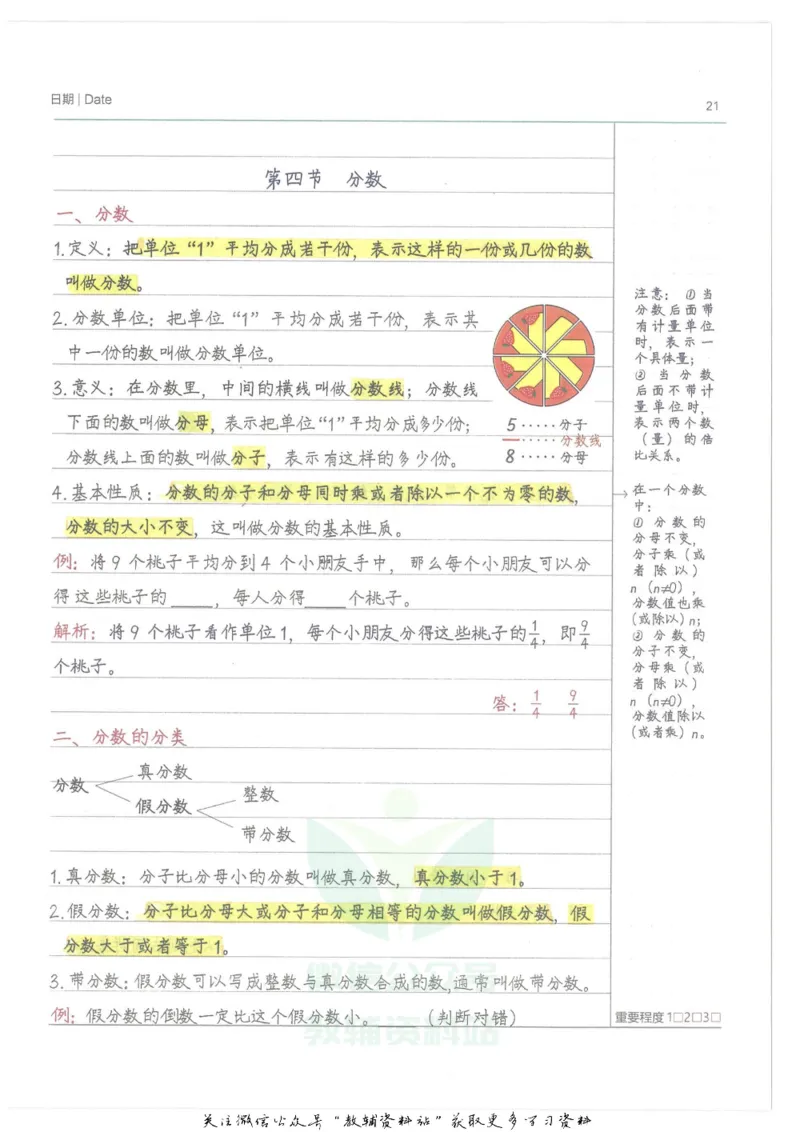 日期 | Date
21
第四节 分数
一、分数
1.定义：把单位“1”平均分成若干份，表示这样的一份或几份的数
叫做分数。
2.分数单位：把单位“1”平均分成若干份，表示其
中一份的数叫做分数单位。
3.意义：在分数里，中间的横线叫做分数线；分数线
下面的数叫做分母，表示把单位“1”平均分成多少份；
分数线上面的数叫做分子，表示有这样的多少份。
5·····分子
—·····分数线
8·····分母
4.基本性质：分数的分子和分母同时乘或者除以一个不为零的数，
分数的大小不变，这叫做分数的基本性质。
例：将9个桃子平均分到4个小朋友手中，那么每个小朋友可以分
得这些桃子的____，每人分得____个桃子。
解析：将9个桃子看作单位1，每个小朋友分得这些桃子的1/4，即9/4
个桃子。
答：1/4 9/4
二、分数的分类
分数
真分数
假分数
整数
带分数
1.真分数：分子比分母小的分数叫做真分数，真分数小于1。
2.假分数：分子比分母大或分子和分母相等的分数叫做假分数，假
分数大于或者等于1。
3.带分数：假分数可以写成整数与真分数合成的数，通常叫做带分数。
例：假分数的倒数一定比这个假分数小。____（判断对错）
注意：①当
分数后面带
有计量单位
时，表示一
个具体量；
②当分数
后面不带计
量单位时，
表示两个数
（量）的倍
比关系。
→在一个分数
中：
①分数的
分母不变，
分子乘（或
者除以）
n（n≠0），
分数值也乘
（或除以）n；
②分数的
分子不变，
分母乘（或
者除以）
n（n≠0），
分数值除以
（或者乘）n。
重要程度 1□2□3□
微信公众号
教辅资料站
关注微信公众号“教辅资料站”获取更多学习资料